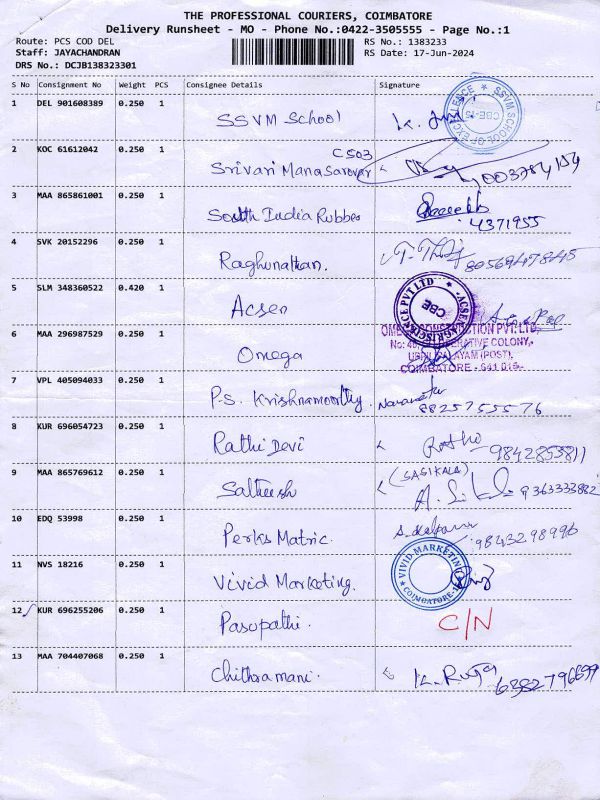 THE PROFESSIONAL COURIERS, COIMBATORE
Delivery Runsheet - MO - Phone No.:0422-3505555 - Page No.:1
Route: PCS COD DEL
Staff: JAYACHANDRAN
DRS No.: DCJB138323301
RS No.: 1383233
RS Date: 17-Jun-2024
S No Consignment No Weight PCS Consignee Details Signature
1 DEL 901608389 0.250 1 SSVM School
SSVM SCHOOL OF EXCELLENCE CBE-15
2 KOC 61612042 0.250 1 Srivari Manasarovar C503
3 MAA 865861001 0.250 1 South India Rubber
4371955
4 SVK 20152296 0.250 1 Raghunathan.
5 SLM 348360522 0.420 1 Acsen
ACSEN AGRISCIENCE PVT LTD CBE
6 MAA 296987529 0.250 1 Omega
CONSTRUCTION PVT. LTD.
COIMBATORE - 641 015.
7 VPL 405094033 0.250 1 P.S. Krishnamoorthy.
8825755576
8 KUR 696054723 0.250 1 Rathi Devi
9842853811
9 MAA 865769612 0.250 1 Satheesh (SASIKALA)
9363333882
10 EDQ 53998 0.250 1 Perks Matric.
9843298996
11 NVS 18216 0.250 1 Vivid Marketing.
VIVID MARKETING COIMBATORE
12 KUR 696255206 0.250 1 Pasupathi. C/N
13 MAA 704407068 0.250 1 Chithramani.